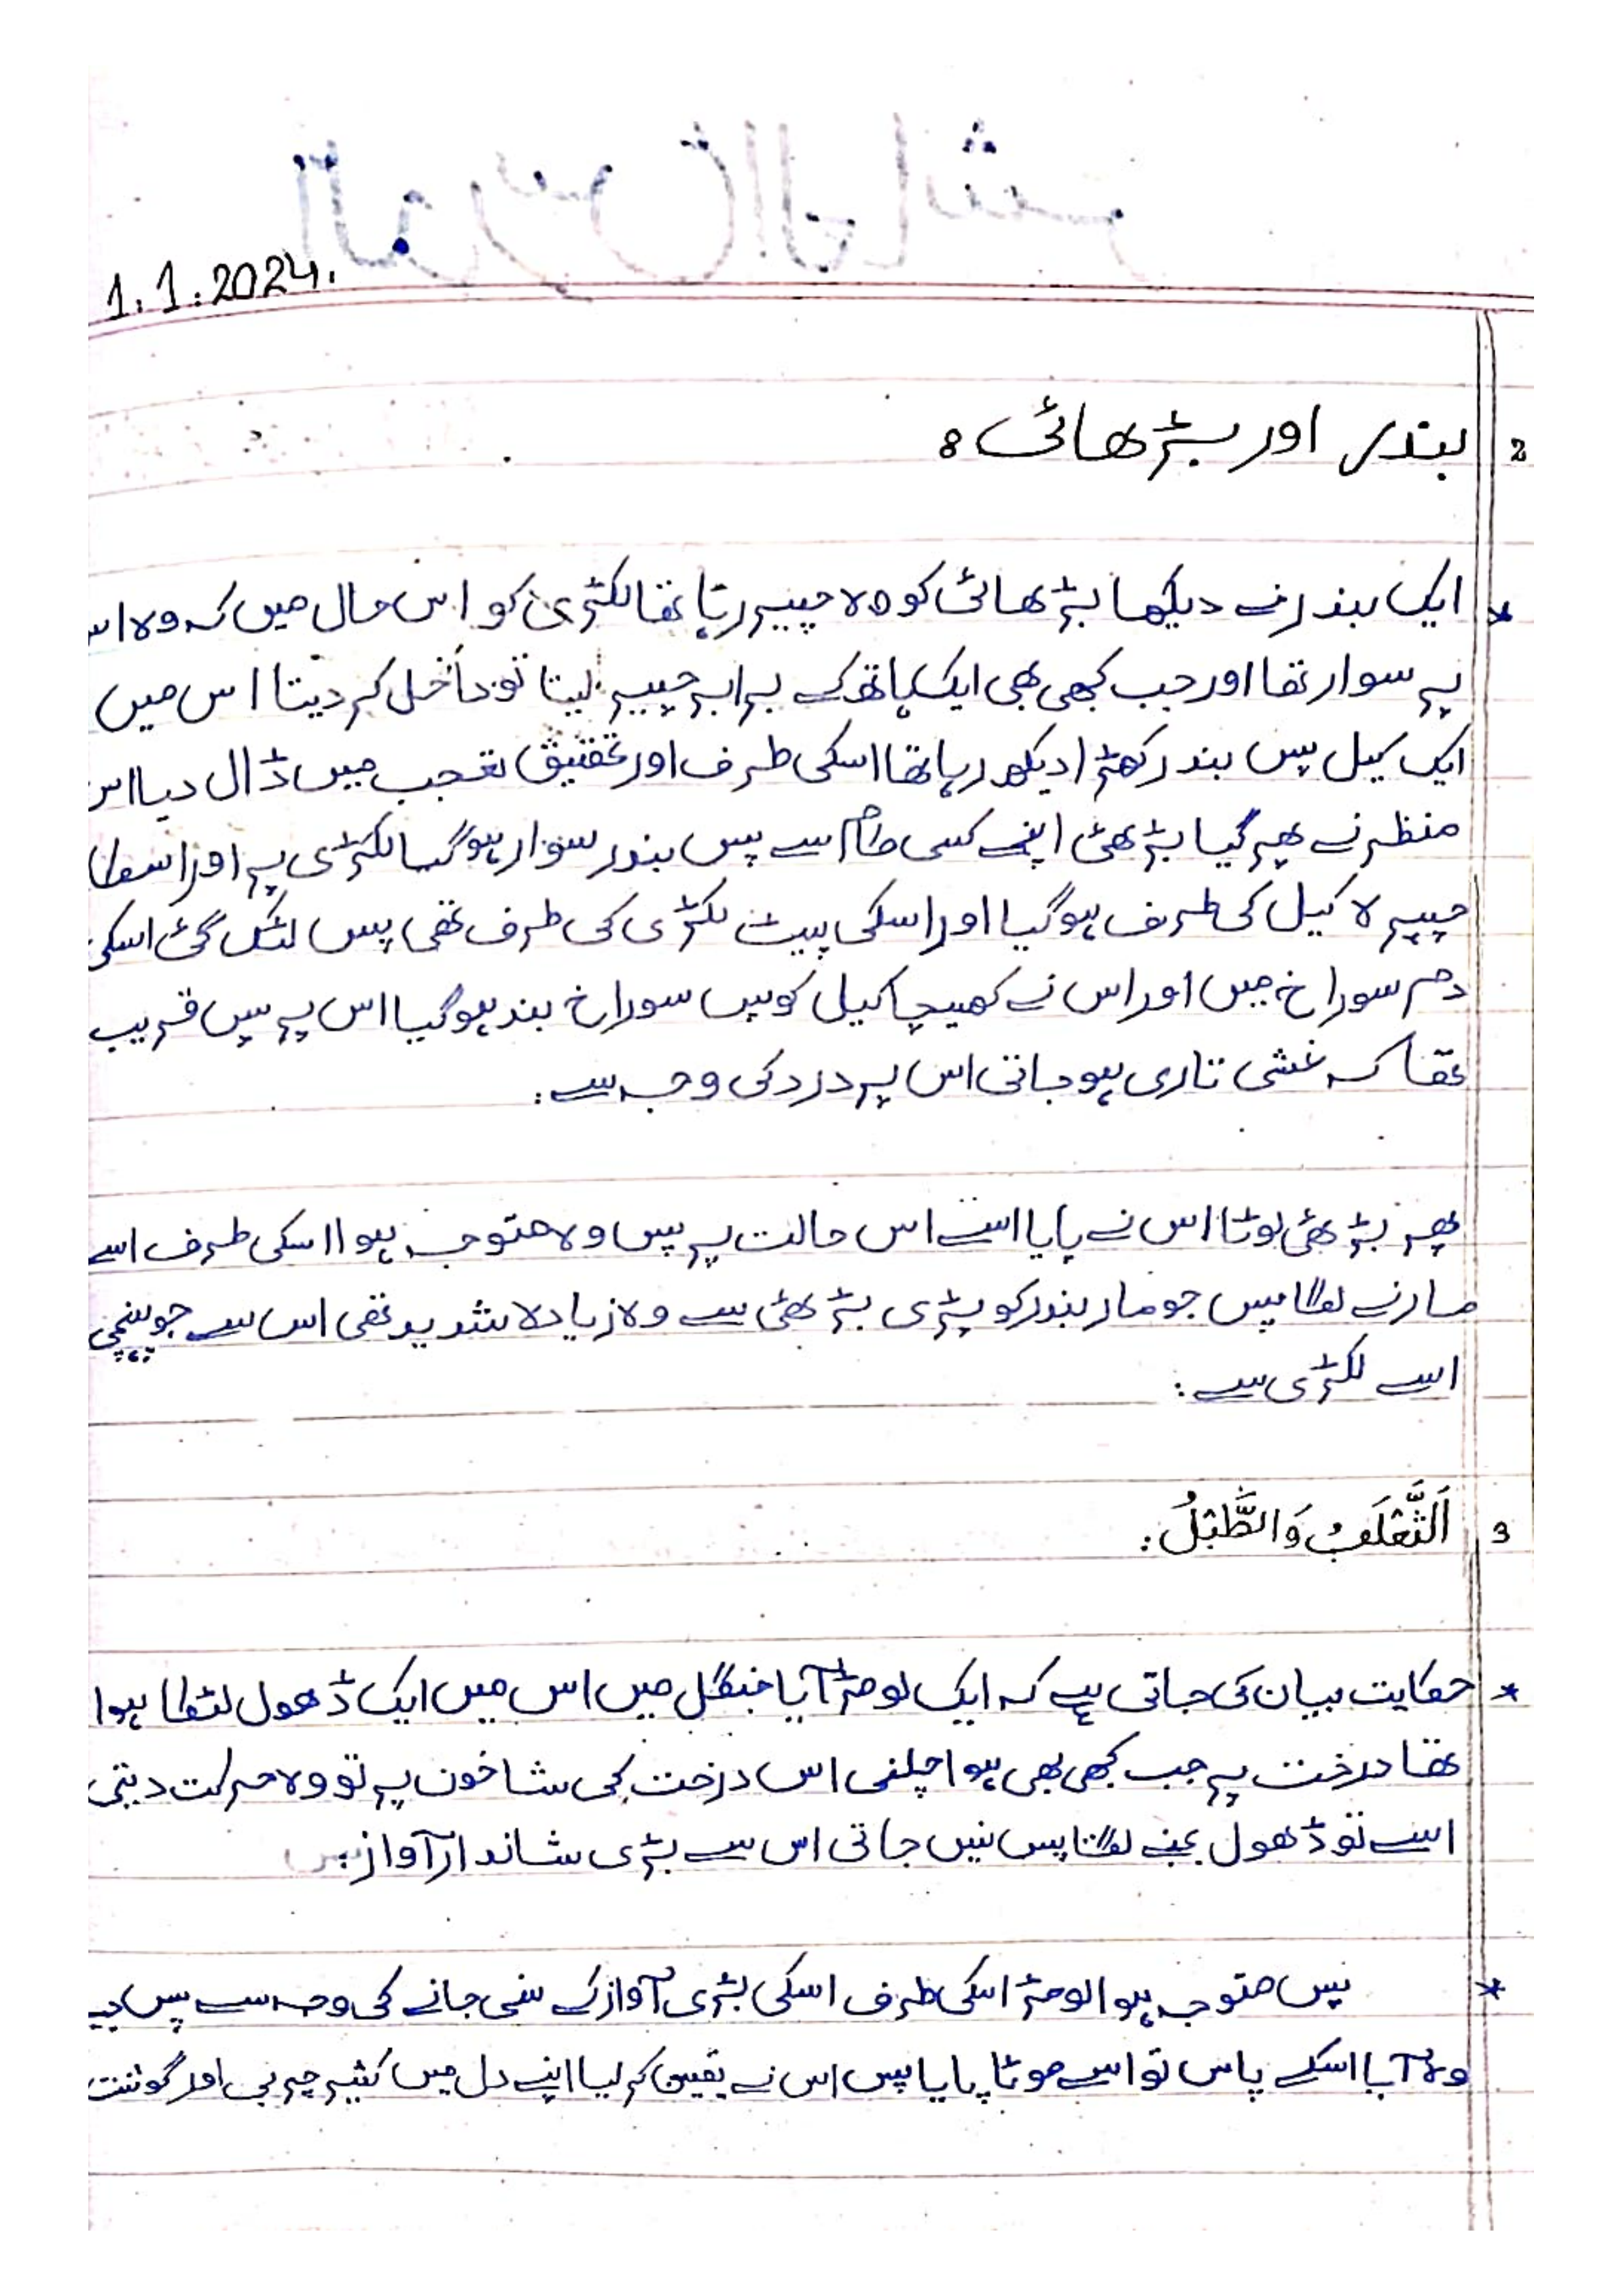 1.1.2024.
2 بندر اور بڑھائی:
* ایک بندر نے دیکھا بڑھائی کو وہ چییر رہا تھا لکڑی کو اس حال میں کہ وہ اس
پہ سوار تھا اور جب کبھی بھی ایک ہاتھ کے برابر چییر لیتا تو داخل کر دیتا اس میں
ایک کیل پس بندر کھڑا دیکھ رہا تھا اسکی طرف اور تحقیق تعجب میں ڈال دیا اس
منظر نے پھر گیا بڑھئی اپنے کسی کام سے پس بندر سوار ہو گیا لکڑی پہ اور اسکا
چہرہ کیل کی طرف ہو گیا اور اسکی پیٹ لکڑی کی طرف تھی پس لٹک گئ اسکی
دم سوراخ میں اور اس نے کھیچا کیل کو پس سوراخ بند ہو گیا اس پہ پس قریب
تھا کہ غشی تاری ہو جاتی اس پہ درد کی وجہ سے:
پھر بڑھئی لوٹا اس نے پایا اسے اس حالت پہ پس وہ متوجہ ہوا اسکی طرف اسے
مارنے لگا پس جو مار بندر کو پڑی بڑھئی سے وہ زیادہ شدید تھی اس سے جو پہنچی
اسے لکڑی سے:
3 اَلثَّعْلَبُ وَالطَّبْلُ:
* حکایت بیان کی جاتی ہے کہ ایک لومڑ آیا جنگل میں اس میں ایک ڈھول لٹکا ہوا
تھا درخت پہ جب کبھی بھی ہوا چلتی اس درخت کی شاخوں پہ تو وہ حرکت دیتی
اسے تو ڈھول بجنے لگتا پس نیں جاتی اس سے بڑی شاندار آواز:
* پس متوجہ ہوا لومڑ اسکی طرف اسکی بڑی آواز کے سنی جانے کی وجہ سے پس جب
وہ آیا اسکے پاس تو اسے موٹا پایا پس اس نے یقین کر لیا اپنے دل میں کثیر چربی اور گوشت